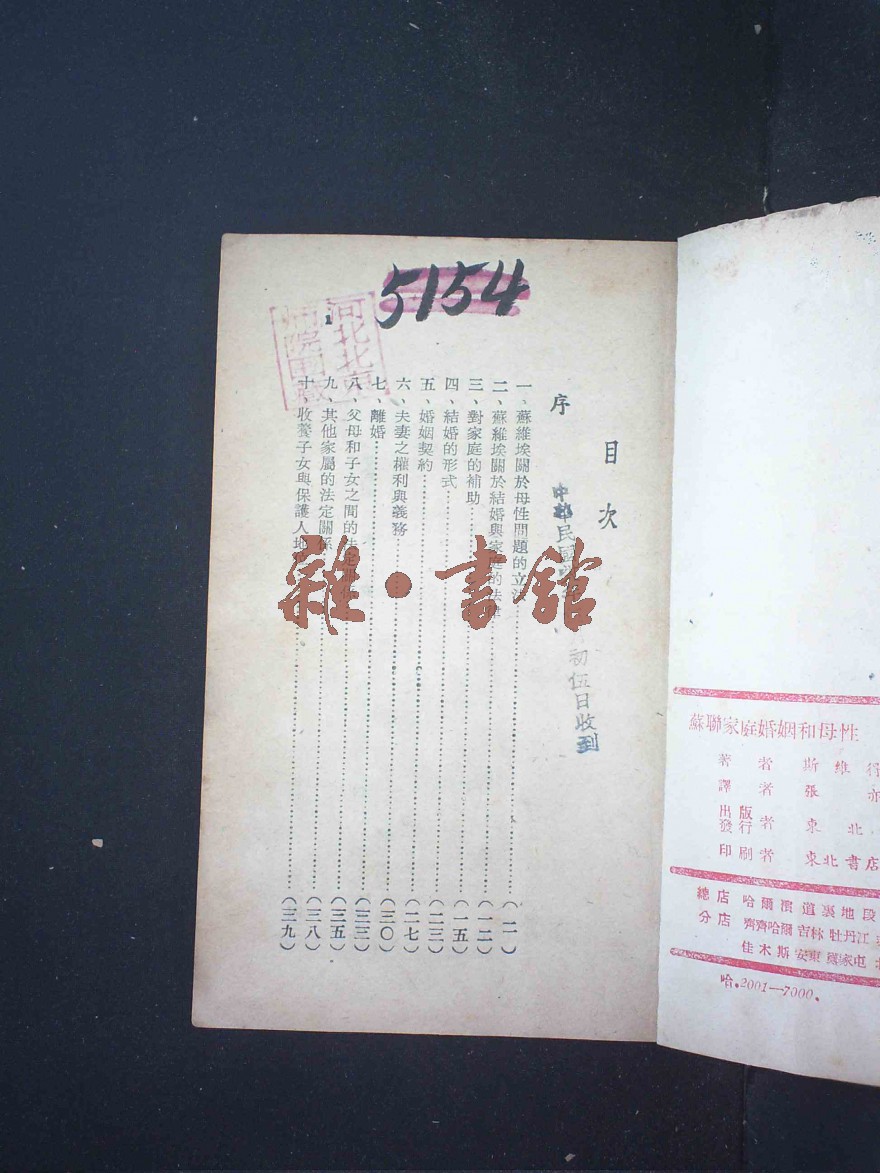 5154
目次
序
中華民國
初伍日收到
一、蘇維埃關於母性問題的立法……(一)
二、蘇維埃關於結婚與家庭的法律……(一二)
三、對家庭的補助……(一五)
四、結婚的形式……(二三)
五、婚姻契約……(二七)
六、夫妻之權利與義務……(三〇)
七、離婚……(三三)
八、父母和子女之間的法定關係……(三五)
九、其他家屬的法定關係……(三八)
十、收養子女與保護人地……(三九)
雜·書館
蘇聯家庭婚姻和母性
著者 斯維
譯者 張亦
出版發行者 東北
印刷者 東北書店
總店 哈爾濱道裏地段
分店 齊齊哈爾 吉林 牡丹江
佳木斯 安東
哈.2001—7000.